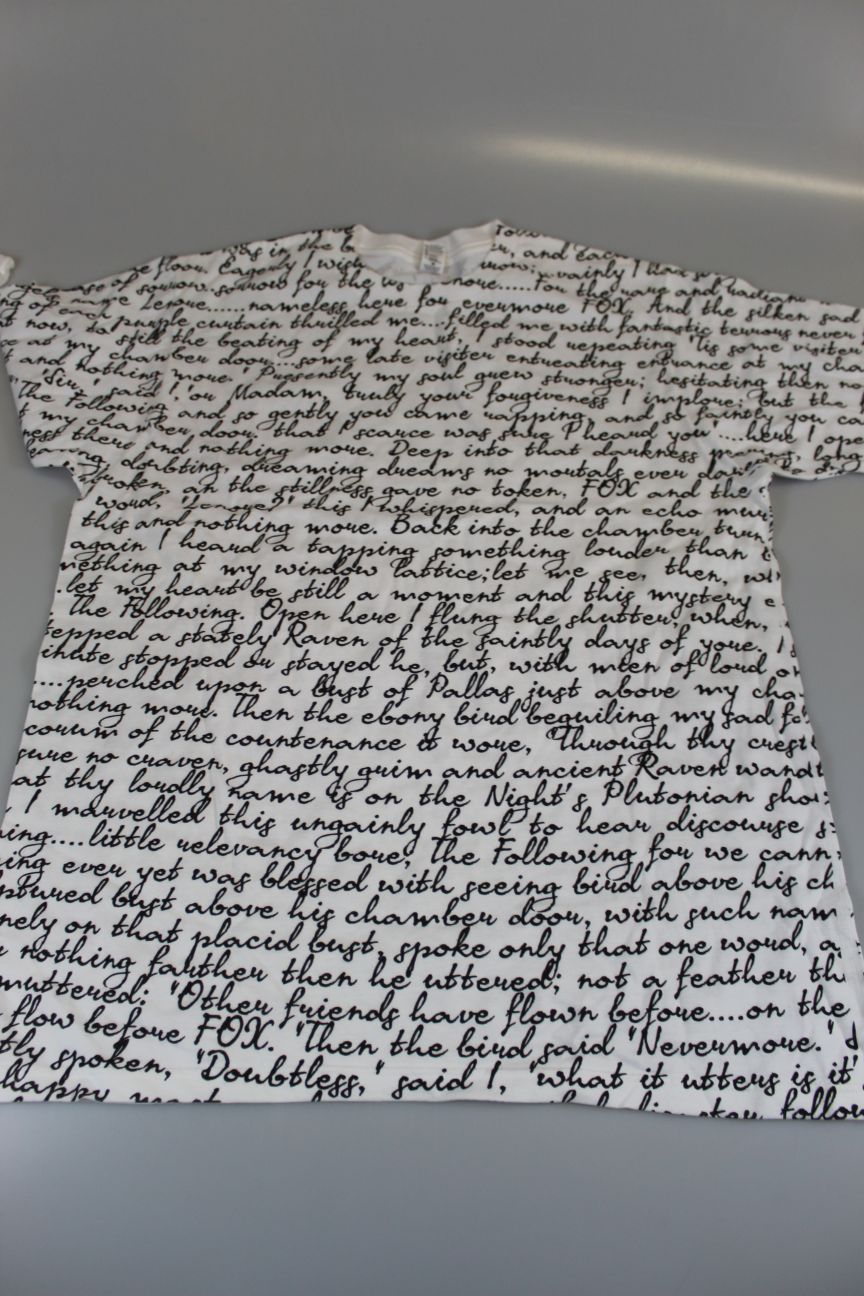 was in the
floor. Eagerly I wish
and each
vainly I had
of sorrow..sorrow for the
....For the rare and radiant
name Lenore......nameless here for evermore FOX. And the silken sad
of each purple curtain thrilled me...filled me with fantastic terrors never
now, to still the beating of my heart, I stood repeating 'Tis some visiter
at my chamber door...some late visiter entreating entrance at my cha
and nothing more.' Presently my soul grew stronger; hesitating then no
'Sir,' said I 'or Madam, truly your forgiveness I implore; but the
The Following and so gently you came rapping, and so faintly you ca
my chamber door, that I scarce was sure I heard you'....here I ope
there and nothing more. Deep into that darkness long
doubting, dreaming dreams no mortals ever
an the stillness gave no token, FOX and the
word, 'Lenore?' this I whispered, and an echo mur
this and nothing more. Back into the chamber turn
again I heard a tapping something louder than
mething at my window lattice;let me see, then, w
.let my heart be still a moment and this mystery e
. The Following. Open here I flung the shutter, when,
tepped a stately Raven of the saintly days of yore.
inute stopped or stayed he, but, with mien of lord o
....perched upon a bust of Pallas just above my cha
nothing more. Then the ebony bird beguiling my sad fa
corum of the countenance it wore, 'Through thy crest
sure no craven, ghastly grim and ancient Raven wand
at thy lordly name is on the Night's Plutonian sho
I marvelled this ungainly fowl to hear discourse s
ing....little relevancy bore, The Following for we cann
ing ever yet was blessed with seeing bird above his ch
ptured bust above his chamber door, with such nam
nely on that placid bust, spoke only that one word, a
nothing farther then he uttered; not a feather th
muttered: "Other friends have flown before....on the
flow before FOX. "Then the bird said "Nevermore."
tly spoken, "Doubtless," said I, "what it utters is it
happy follow